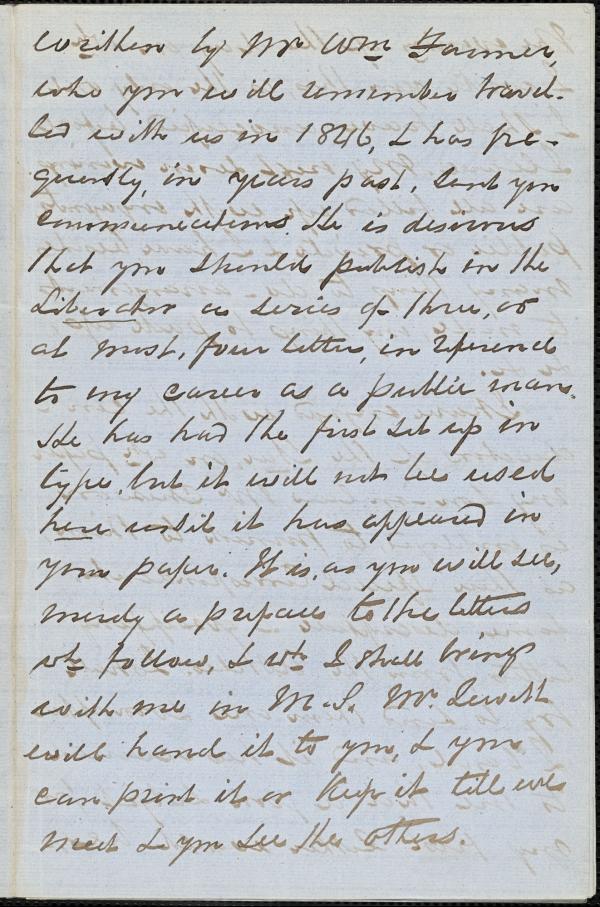 written by Mr Wm Farmer,
who you will remember travel-
led with us in 1846, & has fre-
quently, in years past, sent you
communications. He is desirous
that you should publish in the
Liberator a series of three, or
at most, four letters, in reference
to my career as a public man.
He has had the first set up in
type, but it will not be used
here until it has appeared in
your paper. It is, as you will see,
merely a preface to the letters
wh follow, & wh I shall bring
with me in M.S. Mr. Jewitt
will hand it to you, & you
can print it or keep it till we
meet & you see the others.